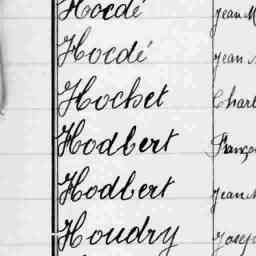 Hoedé Jean M
Hoedé Jean
Hochet Charl
Hodbert Franço
Hodbert Jean
Houdry Josep